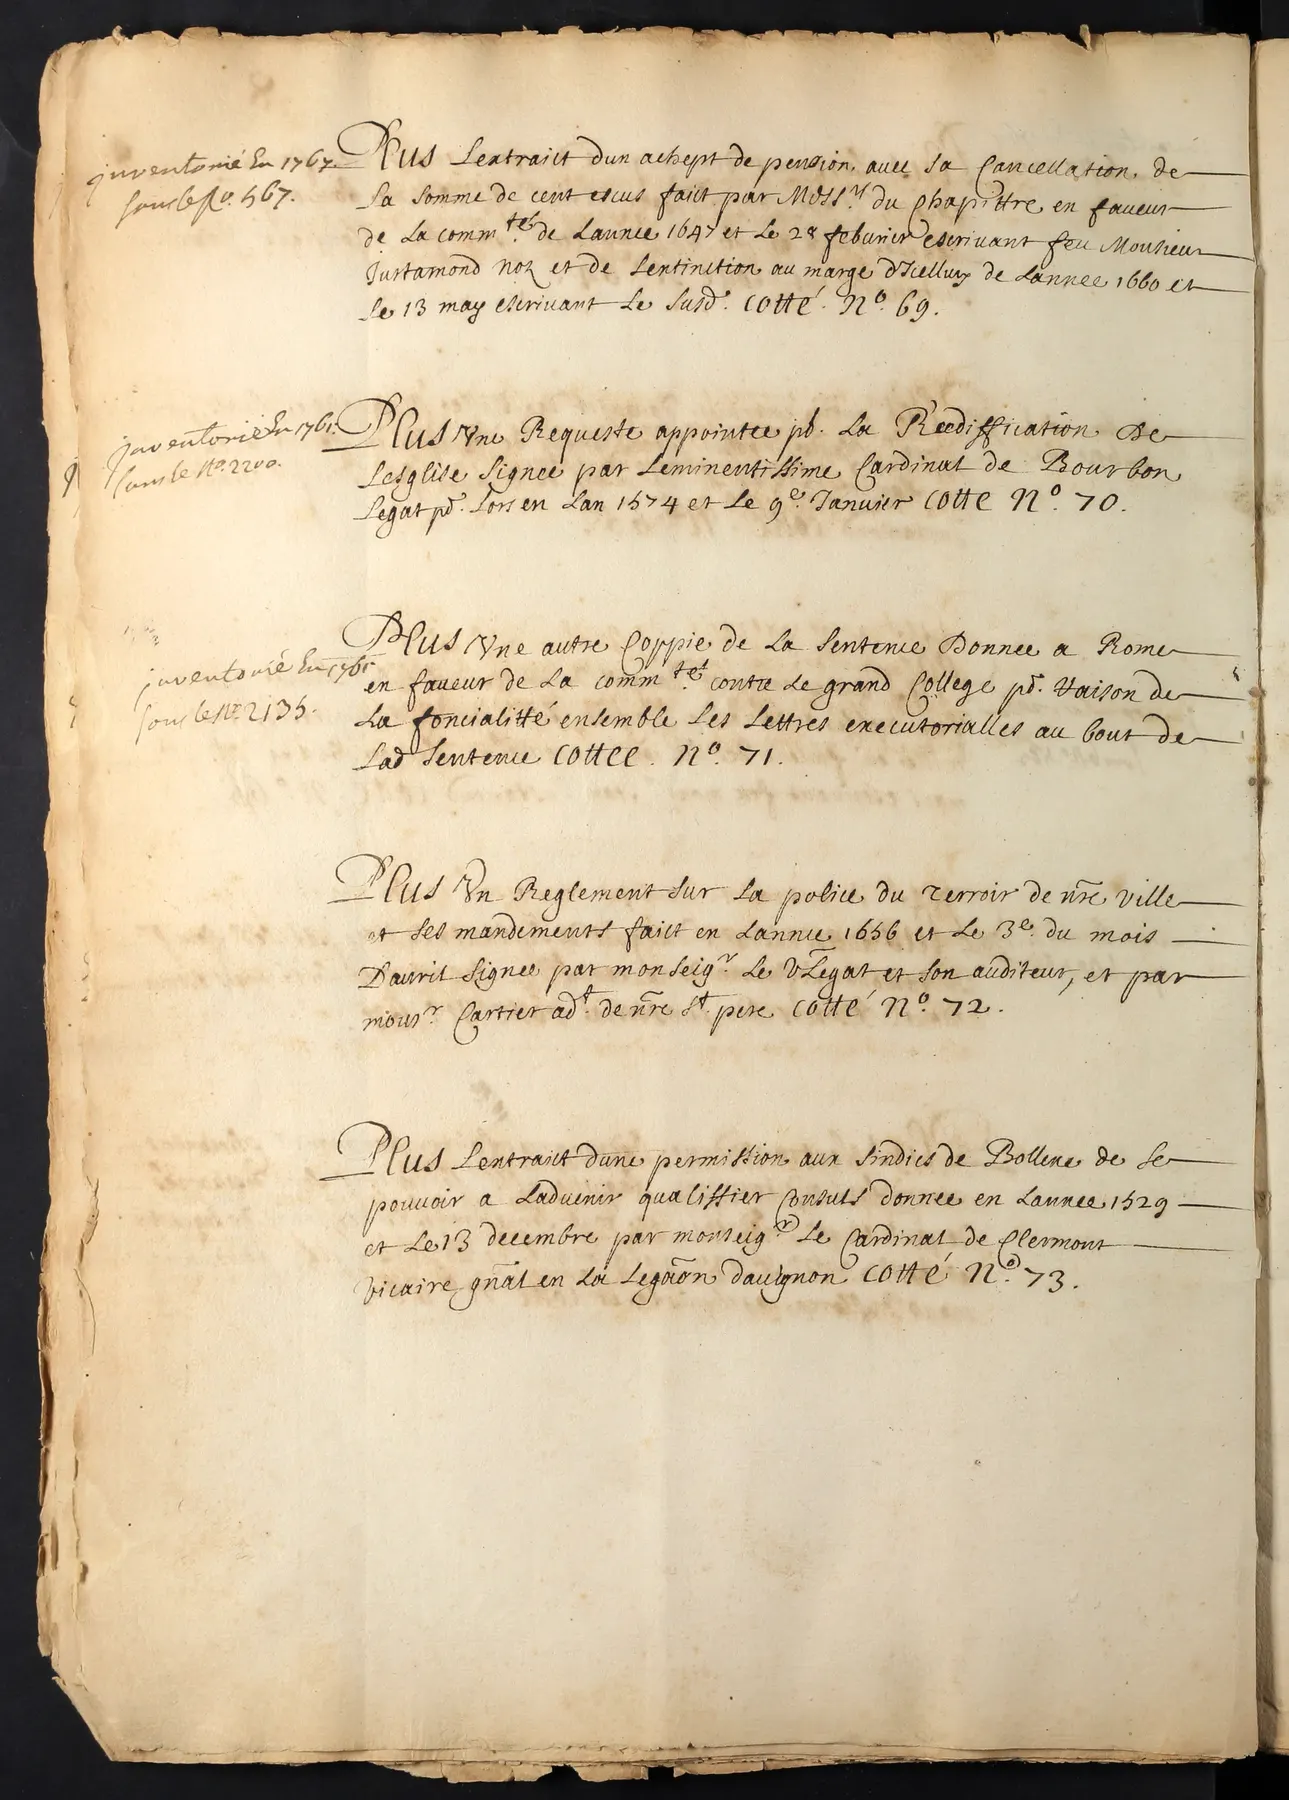 inventorié En 1767.
sous le no. 567.
Plus Lextraict dun achept de pension avec sa Cancellation de
La somme de cent escus faict par Mess.rs du Chapittre en faveur
de La comm.té de Lannee 1647 et Le 28 feburier escrivant feu Monsieur
Justamond no.re et de Lextinction au marge d'Icelluy de Lannee 1660 et
Le 13 may escrivant Le susd. Cotté. N.o 69.
inventorié En 1761.
sous le No. 2200.
Plus Une Requeste appointee p.r La Reediffication De
Lesglise signee par Leminentissime Cardinal de Bourbon
Legat p.r Lors en Lan 1574 et Le 9.e Janvier Cotte N.o 70.
inventorié En 1761
sous le No. 2135.
Plus Une autre Coppie de La Sentence Donnee a Rome
en faveur de La comm.té contre Le grand College p.r Raison de
La foncialitté ensemble Les Lettres executorialles au bout de
Lad Sentence Cottee. N.o 71.
Plus Un Reglement sur La police du Terroir de nre ville
et ses mandements faict en Lannee 1656 et Le 3.e du mois
Davril signee par monseig.r Le VLegat et son auditeur, et par
mons.r Cartier ad.t de nre S.t pere Cotté N.o 72.
Plus Lextraict dune permission aux sindics de Bollene de se
pouvoir a Ladvenir qualiffier Consuls donnee en Lannee 1529
et Le 13 decembre par monseig.r Le Cardinal de Clermont
Vicaire gnal en La Legaon davignon Cotté N.o 73.